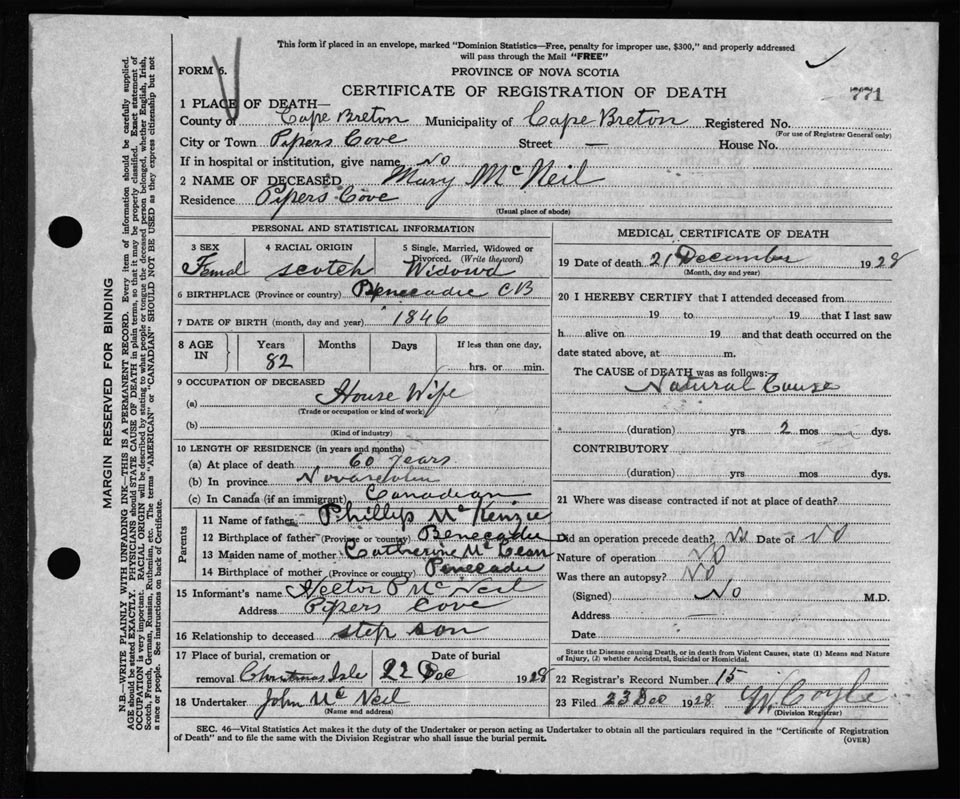 This form if placed in an envelope, marked "Dominion Statistics—Free, penalty for improper use, $300," and properly addressed
will pass through the Mail "FREE"
FORM 6.
PROVINCE OF NOVA SCOTIA
CERTIFICATE OF REGISTRATION OF DEATH
771
1 PLACE OF DEATH—
County of Cape Breton Municipality of Cape Breton Registered No.
(For use of Registrar General only)
City or Town Pipers Cove Street — House No.
If in hospital or institution, give name No
2 NAME OF DECEASED Mary McNeil
Residence Pipers Cove
(Usual place of abode)
PERSONAL AND STATISTICAL INFORMATION
3 SEX 4 RACIAL ORIGIN 5 Single, Married, Widowed or
Divorced. (Write the word)
Femal scotch Widowd
6 BIRTHPLACE (Province or country) Benecadie CB
7 DATE OF BIRTH (month, day and year) 1846
8 AGE IN Years Months Days If less than one day,
82 hrs. or min.
9 OCCUPATION OF DECEASED
(a) House Wife
(Trade or occupation or kind of work)
(b)
(Kind of industry)
10 LENGTH OF RESIDENCE (in years and months)
(a) At place of death 60 years
(b) In province
(c) In Canada (if an immigrant) Canadian
Parents
11 Name of father Phillip McKenzie
12 Birthplace of father (Province or country) Benecadie
13 Maiden name of mother Catherine McLean
14 Birthplace of mother (Province or country) Benecadie
15 Informant's name Hector P McNeil
Address Pipers Cove
16 Relationship to deceased step son
17 Place of burial, cremation or Date of burial
removal Christmas Isle 22 Dec 1928
18 Undertaker John McNeil
(Name and address)
MEDICAL CERTIFICATE OF DEATH
19 Date of death 21 December 1928
(Month, day and year)
20 I HEREBY CERTIFY that I attended deceased from
19 to , 19 that I last saw
h alive on 19 and that death occurred on the
date stated above, at m.
The CAUSE of DEATH was as follows:
Natural Cause
(duration) yrs 2 mos dys.
CONTRIBUTORY
(duration) yrs mos dys.
21 Where was disease contracted if not at place of death?
Did an operation precede death? No Date of No
Nature of operation No
Was there an autopsy? No
(Signed) No M.D.
Address —
Date
State the Disease causing Death, or in death from Violent Causes, state (1) Means and Nature
of Injury, (2) whether Accidental, Suicidal or Homicidal.
22 Registrar's Record Number 15
23 Filed 23 Dec 1928 W. Coyle
(Division Registrar)
SEC. 46—Vital Statistics Act makes it the duty of the Undertaker or person acting as Undertaker to obtain all the particulars required in the "Certificate of Registration
of Death" and to file the same with the Division Registrar who shall issue the burial permit.
(OVER)
MARGIN RESERVED FOR BINDING
N.B.—WRITE PLAINLY WITH UNFADING INK—THIS IS A PERMANENT RECORD. Every item of information should be carefully supplied.
AGE should be stated EXACTLY. PHYSICIANS should STATE CAUSE OF DEATH in plain terms, so that it may be properly classified. Exact statement of
OCCUPATION is very important. RACIAL ORIGIN will be described by stating to what people or tongue the deceased person belonged, whether English, Irish,
Scotch, French, German, Russian, Ruthenian, etc. The terms "AMERICAN" or "CANADIAN" SHOULD NOT BE USED as they express citizenship but not
a race or people. See instructions on back of Certificate.